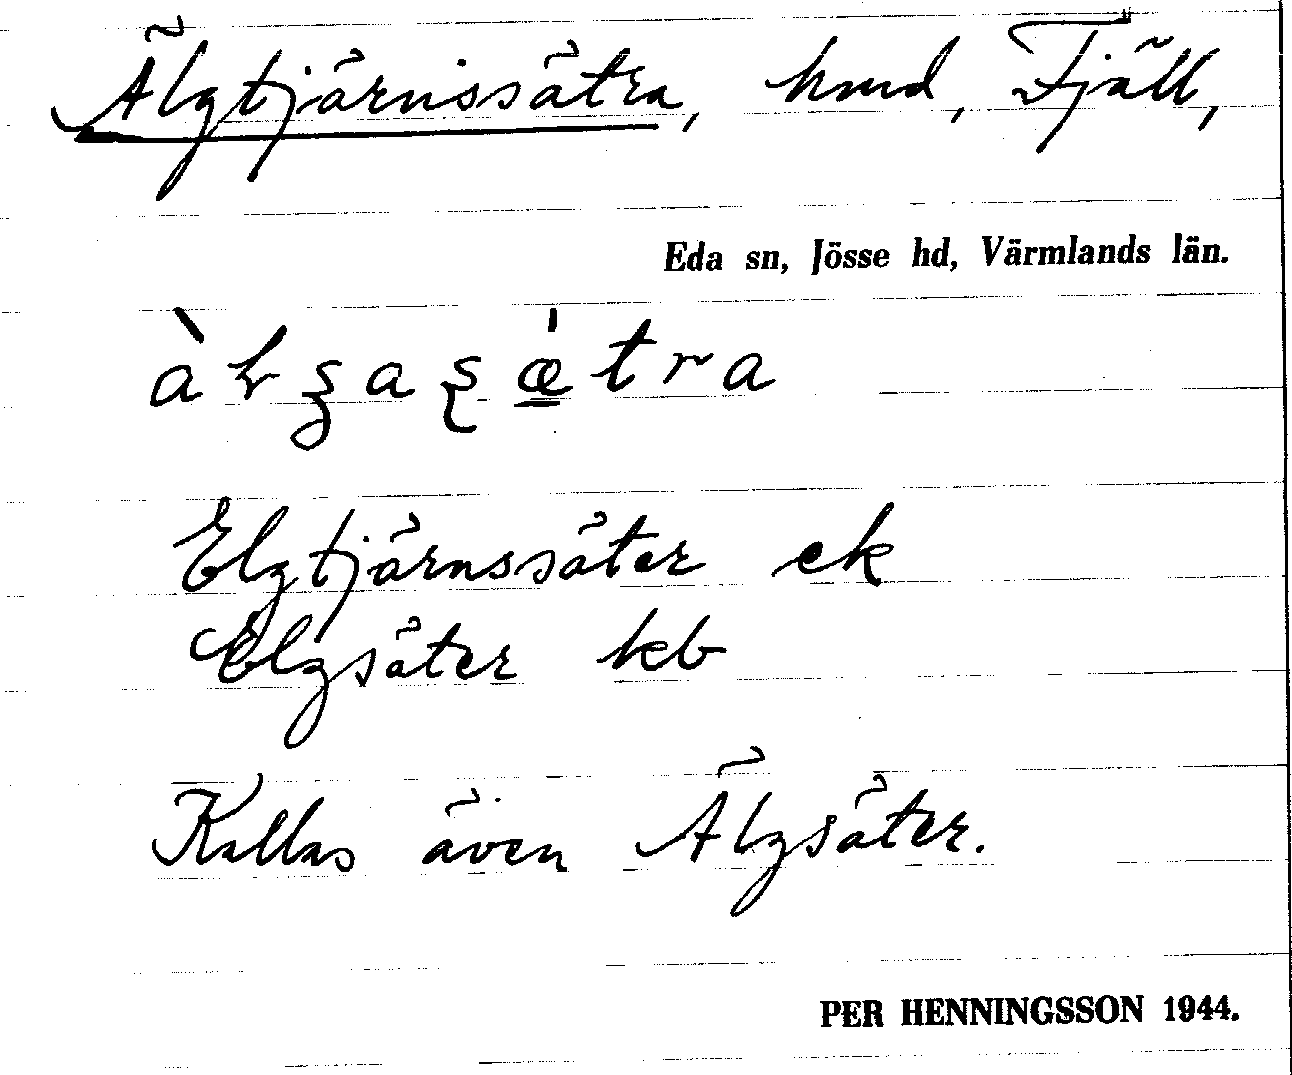 Älgtjärnssätra, hmd, Fjäll,
Eda sn, Jösse hd, Värmlands län.
Elgtjärnssäter ek
Elgsäter kb
Kallas även Älgsäter.
PER HENNINGSSON 1944.